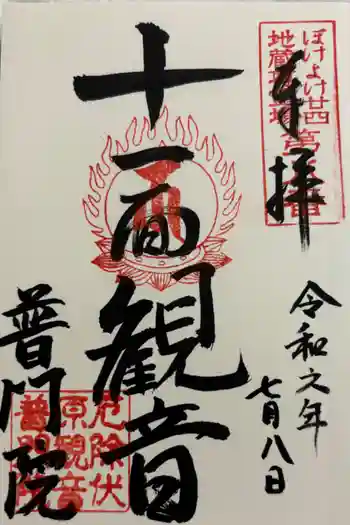 奉拝
ぼけよけ廿四
地蔵
第
番
十一面観音
令和元年
七月八日
普門院
厄除伏
原観音
普門院